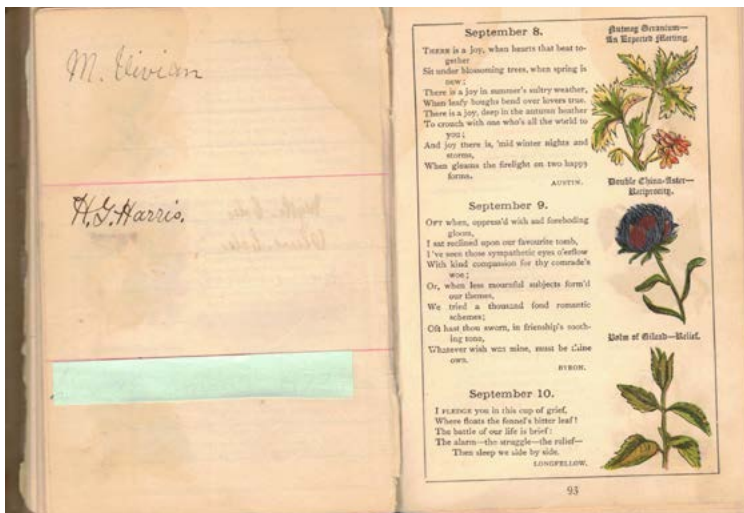 M. Vivian
H. G. Harris.
September 8.
THERE is a joy, when hearts that beat to-
gether
Sit under blossoming trees, when spring is
new;
There is a joy in summer's sultry weather,
When leafy boughs bend over lovers true.
There is a joy, deep in the autumn heather
To crouch with one who's all the world to
you;
And joy there is, 'mid winter nights and
storms,
When gleams the firelight on two happy
forms.
AUSTIN.
Nutmeg Geranium—
An Expected Meeting.
September 9.
OFT when, oppress'd with sad foreboding
gloom,
I sat reclined upon our favourite tomb,
I've seen those sympathetic eyes o'erflow
With kind compassion for thy comrade's
woe;
Or, when less mournful subjects form'd
our themes,
We tried a thousand fond romantic
schemes;
Oft hast thou sworn, in frienship's sooth-
ing tone,
Whatever wish was mine, must be thine
own.
BYRON.
Double China-Aster—
Reciprocity.
September 10.
I PLEDGE you in this cup of grief,
Where floats the fennel's bitter leaf!
The battle of our life is brief:
The alarm—the struggle—the relief—
Then sleep we side by side.
LONGFELLOW.
Balm of Gilead—Relief.
93